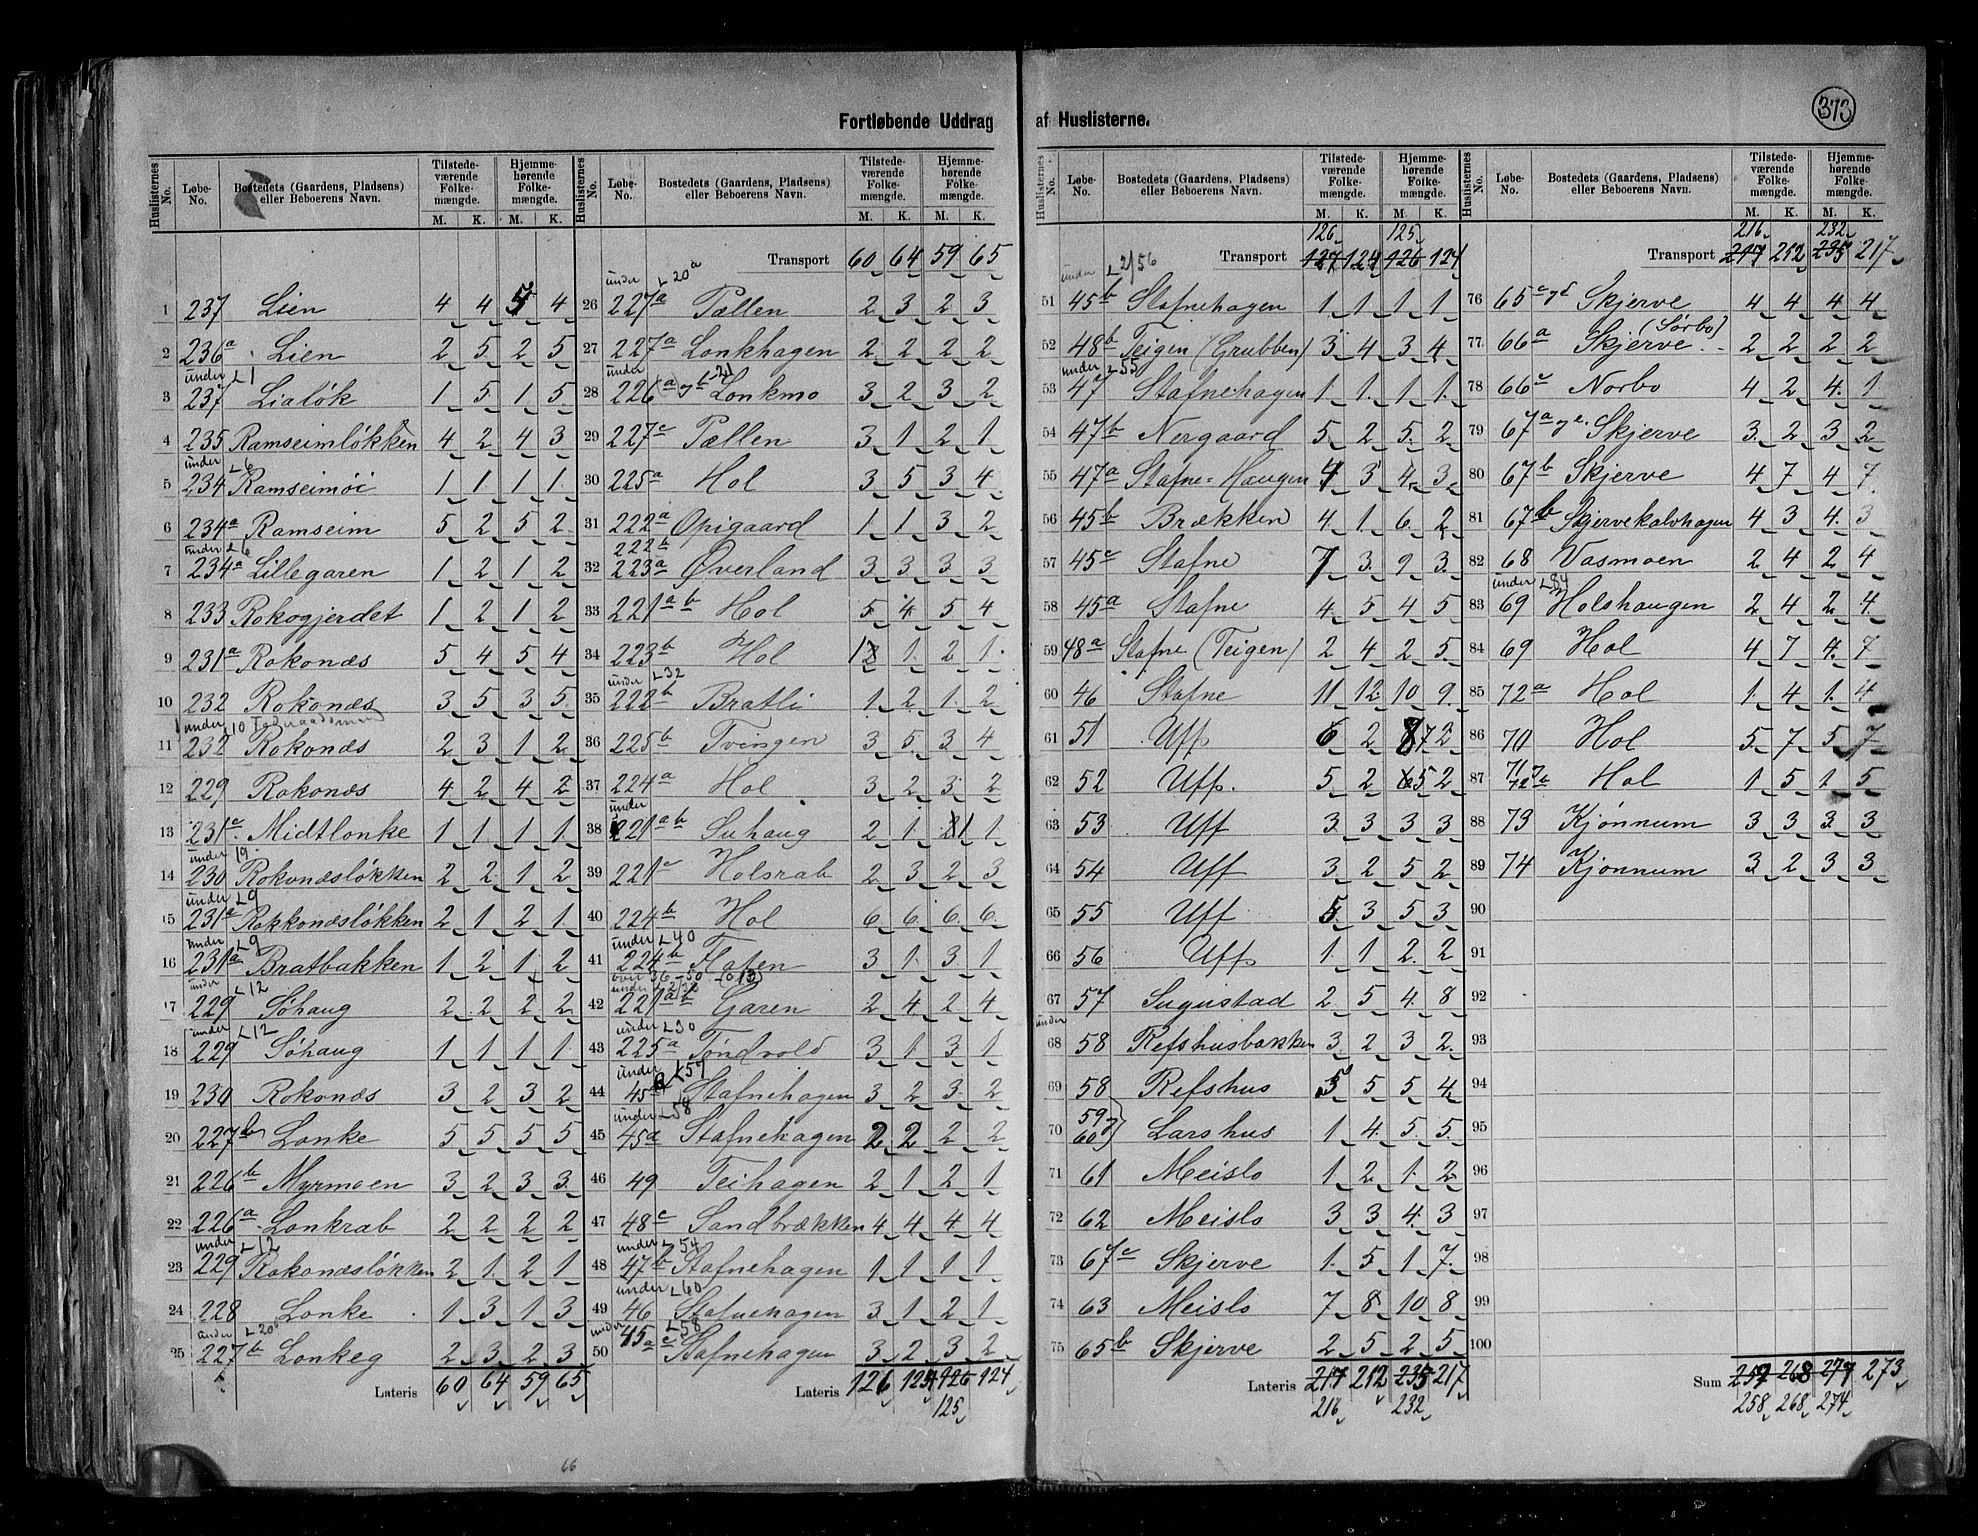 373
Fortløbende Uddrag af Huslisterne.
Huslisternes No. Løbe-No. Bostedets (Gaardens, Pladsens) eller Beboerens Navn. Tilstedeværende Folkemængde. M. K. Hjemmehørende Folkemængde. M. K.
1 237 Lien 4 4 5 4
2 236a Lien 2 5 2 5
3 under L 1 237 Lialøk 1 5 1 5
4 235 Ramseimløkken 4 2 4 3
5 under L 6 234 Ramseimøi 1 1 1 1
6 234a Ramseim 5 2 5 2
7 under L 6 234a Lillegaren 1 2 1 2
8 233 Rokogjerdet 1 2 1 2
9 231a Rokonæs 5 4 5 4
10 232 Rokonæs 3 5 3 5
11 under L 10 232 Rokonæs 2 3 1 2
12 229 Rokonæs 4 2 4 2
13 231c Midtlonke 1 1 1 1
14 under 19 230 Rokonæsløkken 2 2 1 2
15 under L 9 231a Rokkonæsløkken 2 1 2 1
16 under L 9 231a Bratbakken 1 2 1 2
17 under L 12 229 Søhaug 2 2 2 2
18 under L 12 229 Søhaug 1 1 1 1
19 230 Rokonæs 3 2 3 2
20 227b Lonke 5 5 5 5
21 226b Myrmoen 3 2 3 3
22 226a Lonkrab 2 2 2 2
23 under L 12 229 Rokonæsløkken 2 1 2 1
24 228 Lonke 1 3 1 3
25 under L 20 227b Lonkeg 2 3 2 3
Lateris 60 64 59 65
Transport 60 64 59 65
26 under L 20a 227a Pællen 2 3 2 3
27 227a Lonkhagen 2 2 2 2
28 under L 21 226 Lonkmo 3 2 3 2
29 227c Pællen 3 1 2 1
30 225a Hol 3 5 3 4
31 222a Opigaard 1 1 3 2
32 222b 223a Øverland 3 3 3 3
33 221ab Hol 5 4 5 4
34 223b Hol 1 1 2 1
35 under L 32 222b Bratli 1 2 1 2
36 225b Tvingen 3 5 3 4
37 224a Hol 3 2 3 2
38 under 221ab Suhaug 2 1 1 1
39 221c Holsrab 2 3 2 3
40 224b Hol 6 6 6 6
41 under L 40 224b Flaten 3 1 3 1
42 221ab Garen 2 4 2 4
43 under L 30 225a Tøndvold 3 1 3 1
44 under L 57 45 Stafnehagen 3 2 3 2
45 under L 58 45a Stafnehagen 2 2 2 2
46 49 Teihagen 2 1 2 1
47 48c Sandbrækken 4 4 4 4
48 under L 54 47b Stafnehagen 1 1 1 1
49 under L 60 46 Stafnehagen 3 1 2 1
50 under L 58 45a Stafnehagen 3 2 3 2
Lateris 126 124 126 124
125
126 125
Transport 127 124 126 124
51 under L 2/56 45b Stafnehagen 1 1 1 1
52 48b Teigen (Grubben) 3 4 3 4
53 under L 55 47 Stafnehagen 1 1 1 1
54 47b Nergaard 5 2 5 2
55 47a Stafne-Haugen 4 3 4 3
56 45b Brækken 4 1 6 2
57 45c Stafne 7 3 9 3
58 45a Stafne 4 5 4 5
59 48a Stafne (Teigen) 2 4 2 5
60 46 Stafne 11 12 10 9
61 51 Uff 6 2 8 7 2
62 52 Uff. 5 2 6 5 2
63 53 Uff 3 3 3 3
64 54 Uff 3 2 5 2
65 55 Uff 5 3 5 3
66 56 Uff 1 1 2 2
67 57 Sugustad 2 5 4 8
68 under 58 Refshusbakken 3 2 3 2
69 58 Refshus 3 5 5 4
70 59 60 Larshus 1 4 5 5
71 61 Meislo 1 2 1 2
72 62 Meislo 3 3 4 3
73 67c Skjerve 1 5 1 7
74 63 Meislo 7 8 10 8
75 65b Skjerve 2 5 2 5
Lateris 217 212 235 217
216 232
216 232
Transport 217 212 235 217
76 65c Skjerve 4 4 4 4
77 66a Skjerve (Sørbo) 2 2 2 2
78 66c Norbo 4 2 4 1
79 67a Skjerve 3 2 3 2
80 67b Skjerve 4 7 4 7
81 67b Skjervekalvhagen 4 3 4 3
82 68 Vasmoen 2 4 2 4
83 under L 84 69 Holshaugen 2 4 2 4
84 69 Hol 4 7 4 7
85 72a Hol 1 4 1 4
86 70 Hol 5 7 5 7
87 71 72b Hol 1 5 1 5
88 73 Kjønnum 3 3 3 3
89 74 Kjønnum 3 2 3 3
90
91
92
93
94
95
96
97
98
99
100
Sum 257 268 277 273
258 268 274
66